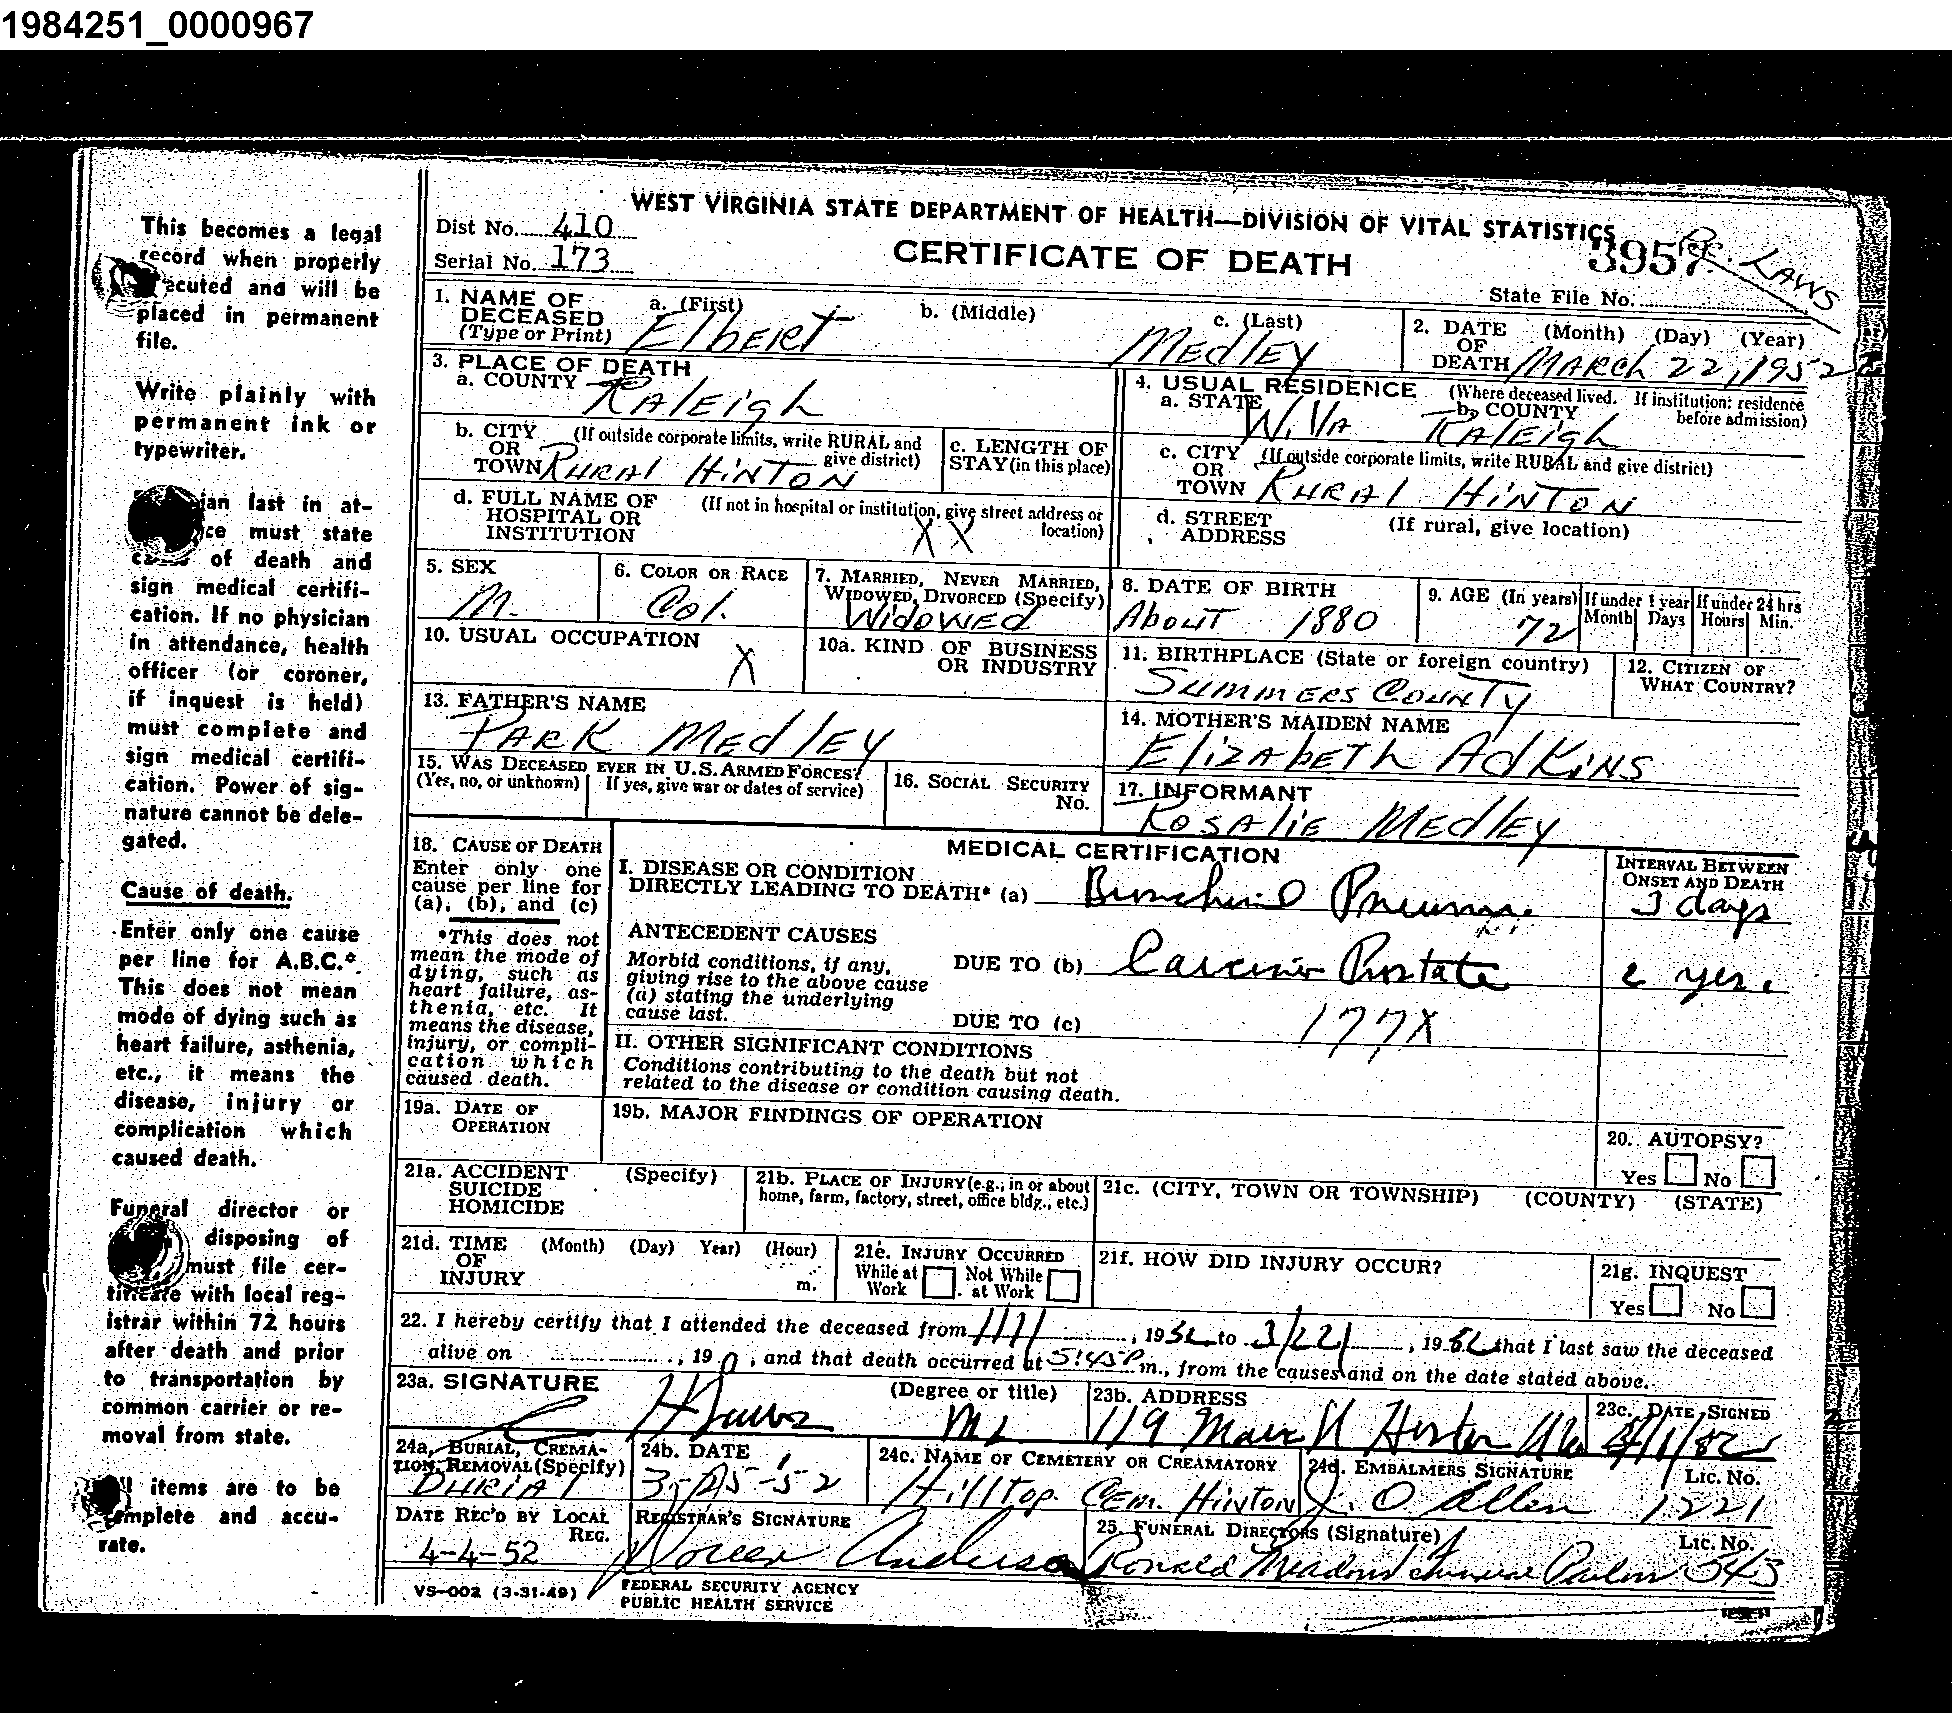 1984251_0000967
This becomes a legal
record when properly
executed and will be
placed in permanent
file.
Write plainly with
permanent ink or
typewriter.
ian last in at-
ce must state
of death and
sign medical certifi-
cation. If no physician
in attendance, health
officer (or coroner,
if inquest is held)
must complete and
sign medical certifi-
cation. Power of sig-
nature cannot be dele-
gated.
Cause of death.
Enter only one cause
per line for A.B.C.*
This does not mean
mode of dying such as
heart failure, asthenia,
etc., it means the
disease, injury or
complication which
caused death.
Funeral director or
disposing of
must file cer-
tificate with local reg-
istrar within 72 hours
after death and prior
to transportation by
common carrier or re-
moval from state.
items are to be
complete and accu-
rate.
WEST VIRGINIA STATE DEPARTMENT OF HEALTH—DIVISION OF VITAL STATISTICS
Dist No. 410
Serial No. 173
CERTIFICATE OF DEATH
3957
LAWS
State File No.
1. NAME OF DECEASED (Type or Print) a. (First) Elbert b. (Middle) c. (Last) Medley
2. DATE OF DEATH (Month) (Day) (Year) March 22, 1952
3. PLACE OF DEATH
a. COUNTY Raleigh
4. USUAL RESIDENCE (Where deceased lived. If institution: residence before admission)
a. STATE W.Va b. COUNTY Raleigh
b. CITY OR TOWN (If outside corporate limits, write RURAL and give district) Rural Hinton
c. LENGTH OF STAY (in this place)
c. CITY OR TOWN (If outside corporate limits, write RURAL and give district) Rural Hinton
d. FULL NAME OF HOSPITAL OR INSTITUTION (If not in hospital or institution, give street address or location) XX
d. STREET ADDRESS (If rural, give location)
5. SEX M.
6. COLOR OR RACE Col.
7. MARRIED, NEVER MARRIED, WIDOWED, DIVORCED (Specify) Widowed
8. DATE OF BIRTH About 1880
9. AGE (In years) 72 If under 1 year Month Days If under 24 hrs Hours Min.
10. USUAL OCCUPATION X
10a. KIND OF BUSINESS OR INDUSTRY
11. BIRTHPLACE (State or foreign country) Summers County
12. CITIZEN OF WHAT COUNTRY?
13. FATHER'S NAME Park Medley
14. MOTHER'S MAIDEN NAME Elizabeth Adkins
15. WAS DECEASED EVER IN U.S. ARMED FORCES?
(Yes, no, or unknown) If yes, give war or dates of service)
16. SOCIAL SECURITY No.
17. INFORMANT Rosalie Medley
18. CAUSE OF DEATH
Enter only one
cause per line for
(a), (b), and (c)
*This does not
mean the mode of
dying, such as
heart failure, as-
thenia, etc. It
means the disease,
injury, or compli-
cation which
caused death.
MEDICAL CERTIFICATION
I. DISEASE OR CONDITION
DIRECTLY LEADING TO DEATH* (a) Bronchial Pneum.
INTERVAL BETWEEN ONSET AND DEATH
3 days
ANTECEDENT CAUSES
Morbid conditions, if any,
giving rise to the above cause
(a) stating the underlying
cause last.
DUE TO (b) Prostate 2 yrs.
DUE TO (c) 177X
II. OTHER SIGNIFICANT CONDITIONS
Conditions contributing to the death but not
related to the disease or condition causing death.
19a. DATE OF OPERATION
19b. MAJOR FINDINGS OF OPERATION
20. AUTOPSY?
Yes No
21a. ACCIDENT SUICIDE HOMICIDE (Specify)
21b. PLACE OF INJURY (e.g., in or about home, farm, factory, street, office bldg., etc.)
21c. (CITY, TOWN OR TOWNSHIP) (COUNTY) (STATE)
21d. TIME OF INJURY (Month) (Day) Year) (Hour) m.
21e. INJURY OCCURRED
While at Work Not While at Work
21f. HOW DID INJURY OCCUR?
21g. INQUEST
Yes No
22. I hereby certify that I attended the deceased from 1/1/, 1952 to 3/22/, 1952 that I last saw the deceased
alive on , 19 , and that death occurred at 5:45P m., from the causes and on the date stated above.
23a. SIGNATURE (Degree or title)
23b. ADDRESS 119 Main
23c. DATE SIGNED
24a. BURIAL, CREMATION, REMOVAL (Specify) Burial
24b. DATE 3-25-52
24c. NAME OF CEMETERY OR CREAMATORY Hilltop Cem. Hinton
24d. EMBALMERS SIGNATURE J. O Allen Lic. No. 1221
DATE REC'D BY LOCAL REG. 4-4-52
REGISTRAR'S SIGNATURE
25. FUNERAL DIRECTORS (Signature) Ronald Meadows Funeral Lic. No. 543
VS-002 (3-31-49)
FEDERAL SECURITY AGENCY
PUBLIC HEALTH SERVICE